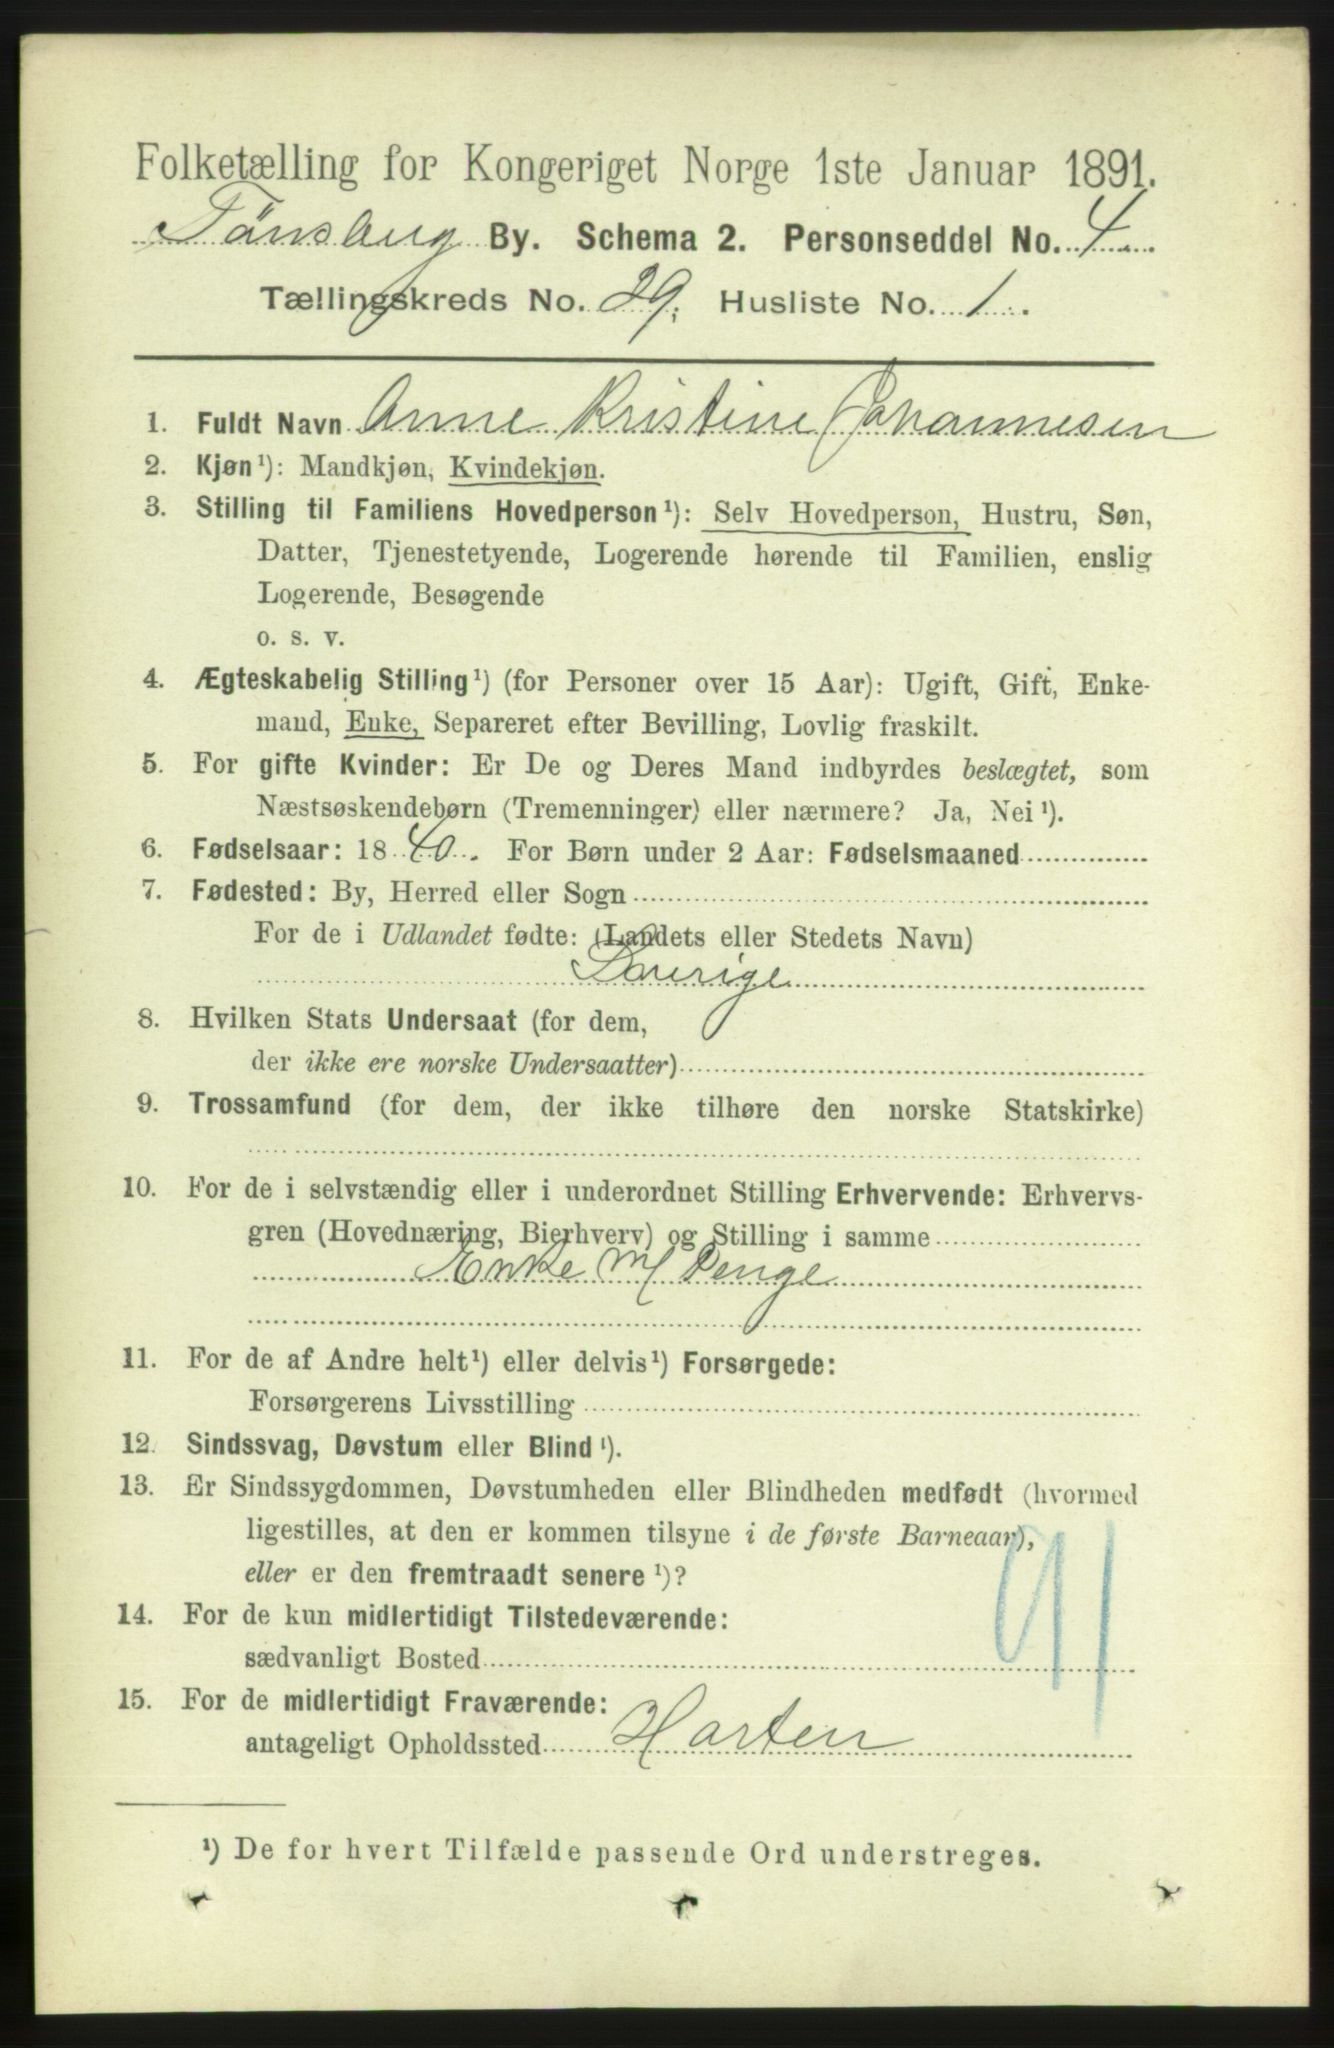 Folketælling for Kongeriget Norge 1ste Januar 1891.
Tönsberg By. Schema 2. Personseddel No. 4
Tællingskreds No. 29. Husliste No. 1.
1. Fuldt Navn Anne Kristine Johannesen
2. Kjøn¹): Mandkjøn, Kvindekjøn.
3. Stilling til Familiens Hovedperson¹): Selv Hovedperson, Hustru, Søn,
Datter, Tjenestetyende, Logerende hørende til Familien, enslig
Logerende, Besøgende
o. s. v.
4. Ægteskabelig Stilling¹) (for Personer over 15 Aar): Ugift, Gift, Enke-
mand, Enke, Separeret efter Bevilling, Lovlig fraskilt.
5. For gifte Kvinder: Er De og Deres Mand indbyrdes beslægtet, som
Næstsøskendebørn (Tremenninger) eller nærmere? Ja, Nei¹).
6. Fødselsaar: 1840. For Børn under 2 Aar: Fødselsmaaned
7. Fødested: By, Herred eller Sogn
For de i Udlandet fødte: (Landets eller Stedets Navn)
Sverige
8. Hvilken Stats Undersaat (for dem,
der ikke ere norske Undersaatter)
9. Trossamfund (for dem, der ikke tilhøre den norske Statskirke)
10. For de i selvstændig eller i underordnet Stilling Erhvervende: Erhvervs-
gren (Hovednæring, Bierhverv) og Stilling i samme
Enke m/ Penge
11. For de af Andre helt¹) eller delvis¹) Forsørgede:
Forsørgerens Livsstilling
12. Sindssvag, Døvstum eller Blind¹).
13. Er Sindssygdommen, Døvstumheden eller Blindheden medfødt (hvormed
ligestilles, at den er kommen tilsyne i de første Barneaar),
eller er den fremtraadt senere¹)?
91
14. For de kun midlertidigt Tilstedeværende:
sædvanligt Bosted
15. For de midlertidigt Fraværende:
antageligt Opholdssted Horten
¹) De for hvert Tilfælde passende Ord understreges.